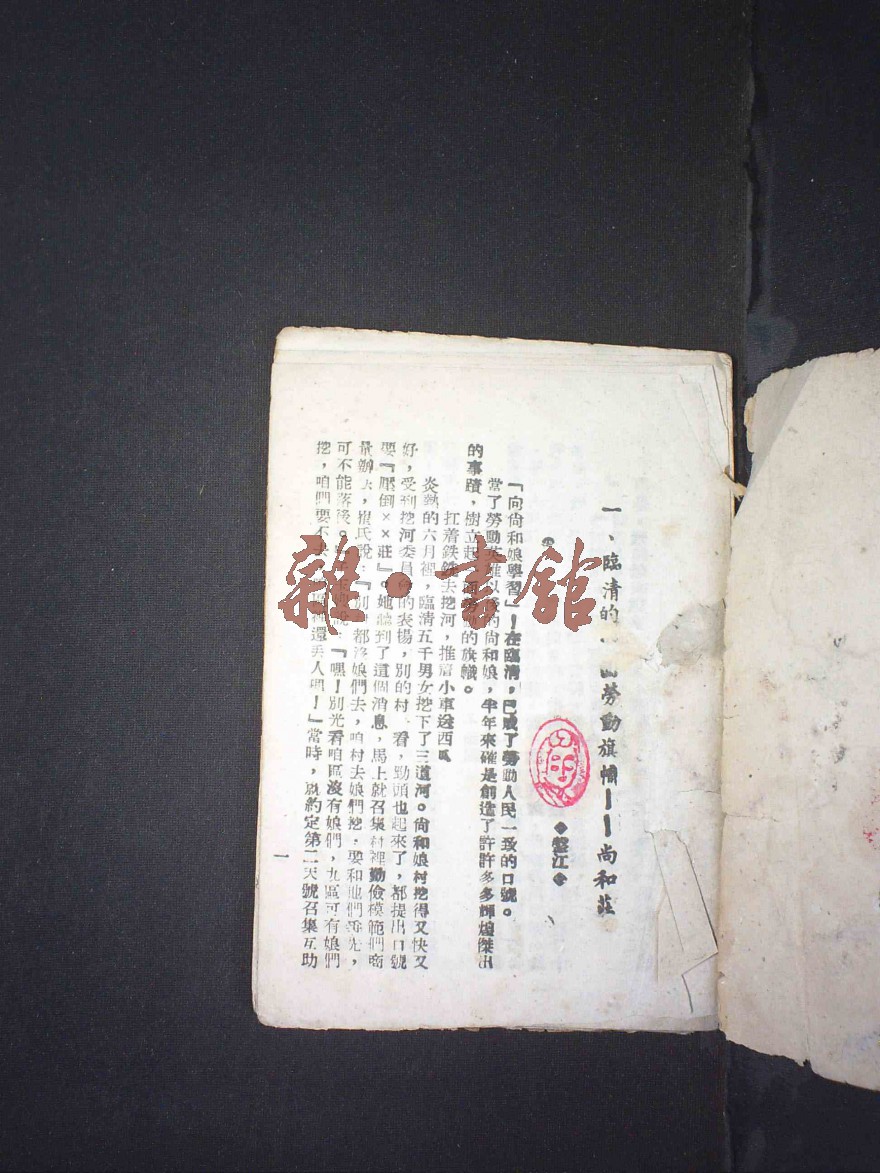 一、臨清的 面勞動旗幟——尚和莊
◆盤江◆
「向尚和娘學習」！在臨清，已成了勞動人民一致的口號。
當了勞動英雄以 的尚和娘，半年來確是創造了許許多多輝煌傑出
的事蹟，樹立起 的旗幟。
扛着鉄銑去挖河，推着小車送西瓜
炎熱的六月裡，臨清五千男女挖下了三道河。尚和娘村挖得又快又
好，受到挖河委員 的表揚，別的村 看，勁頭也起來了，都提出口號
要『壓倒××莊』。她聽到了這個消息，馬上就召集村裡勤儉模範們商
量辦法，崔氏說：『別 都 娘們去，咱村去娘們挖，要和他們爭先，
可不能落後。 說：『嘿！別光看咱區沒有娘們，九區可有娘們
挖，咱們要不去 還丢人哩！』當時，就約定第二天號召集互助
一
雜·書舘